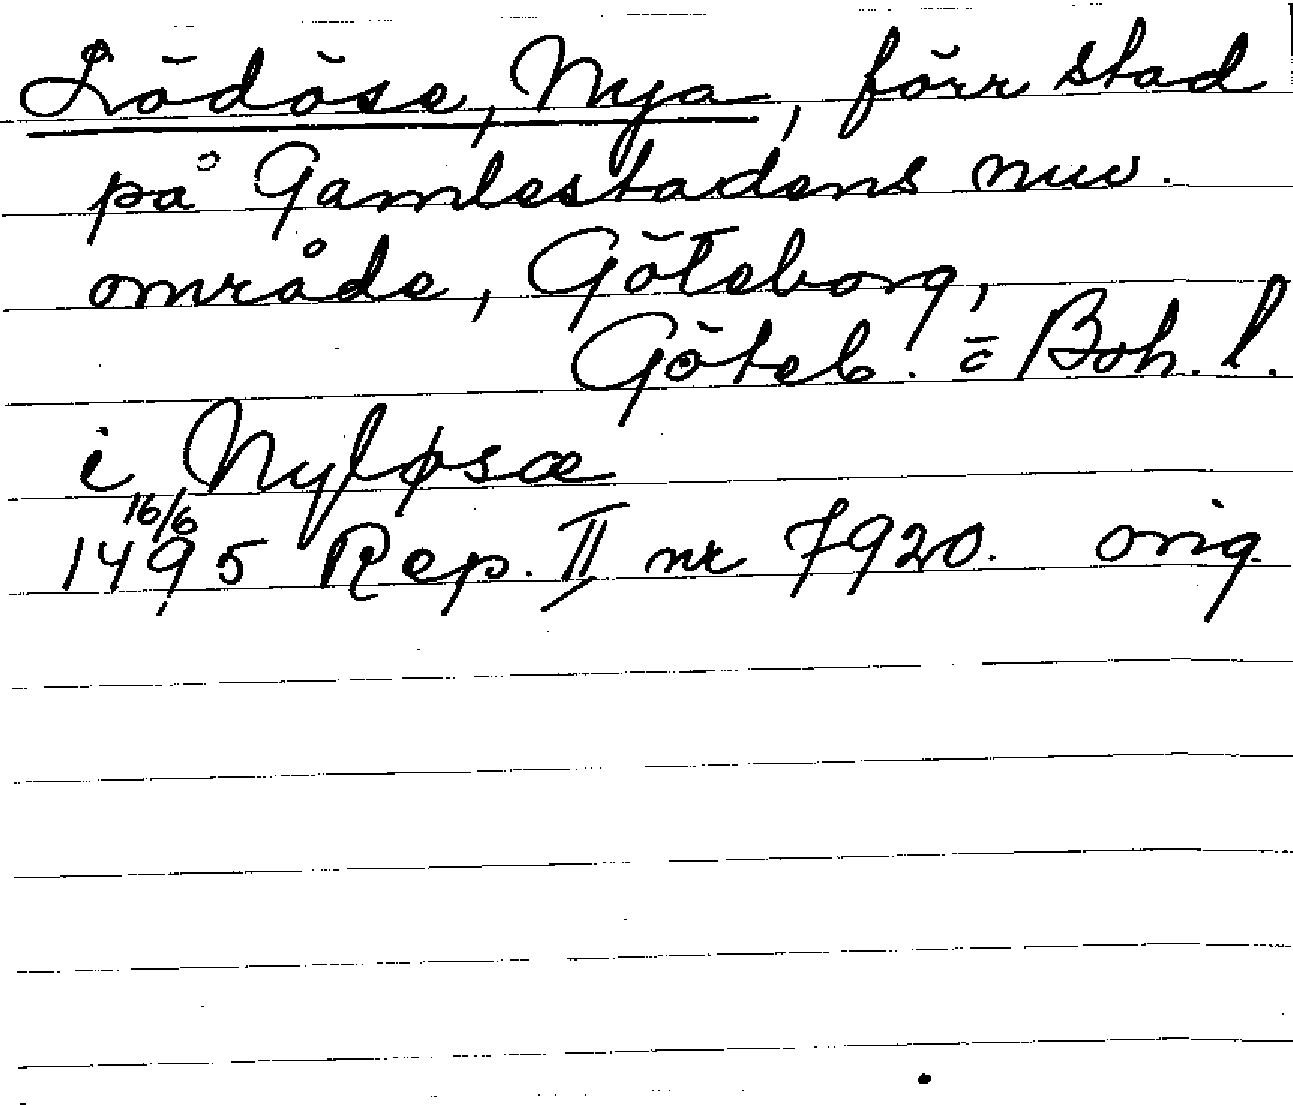 Lödöse, Nya, förr stad
på Gamlestadens nuv.
område, Göteborg,
Göteb. o Boh. l.
i Nyløsæ
16/6
1495 Rep. II nr 7920. orig.